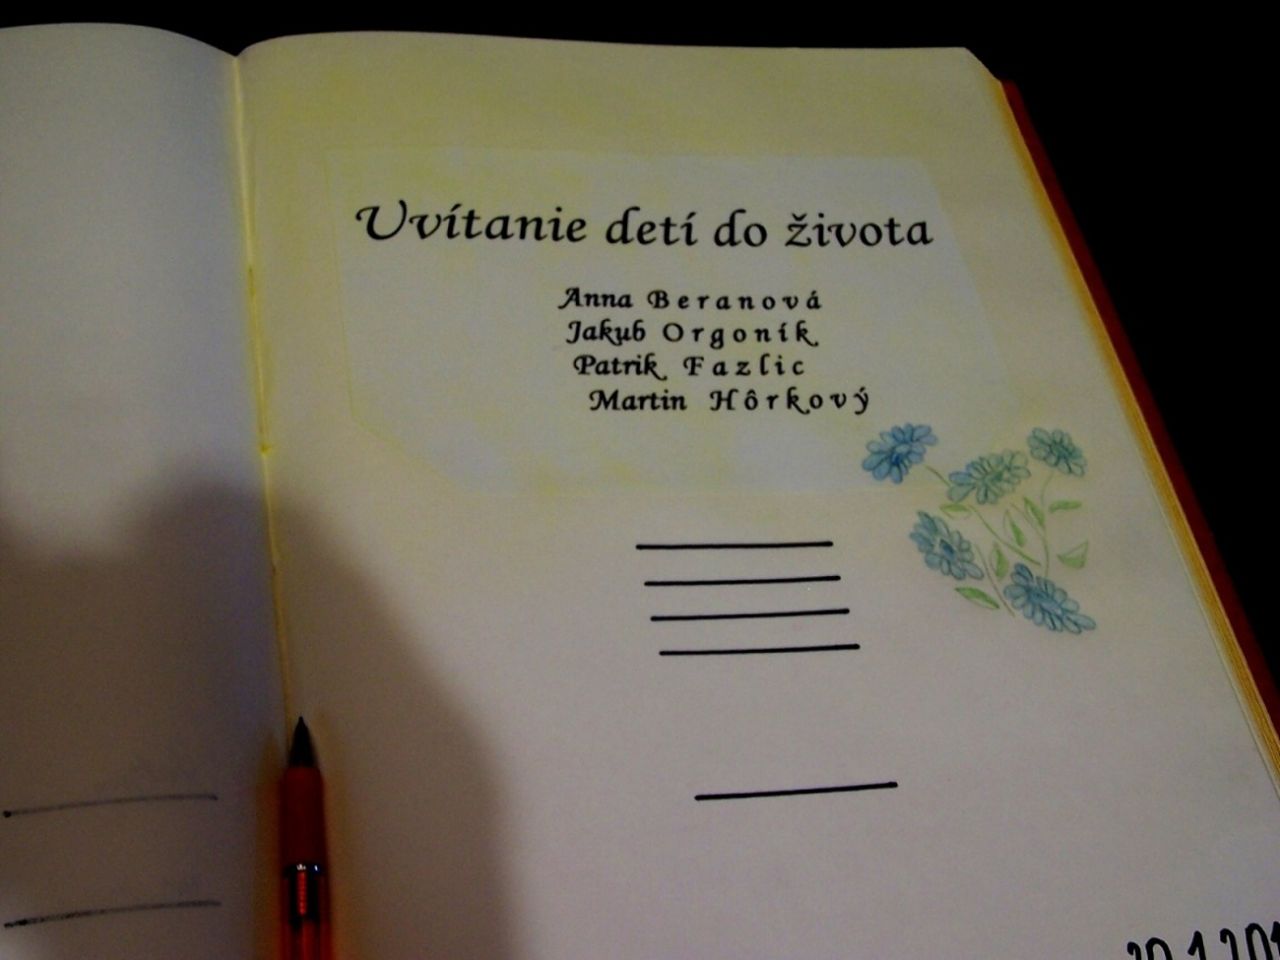 Uvítanie detí do života
Anna Beranová
Jakub Orgoník
Patrik Fazlic
Martin Hôrkový